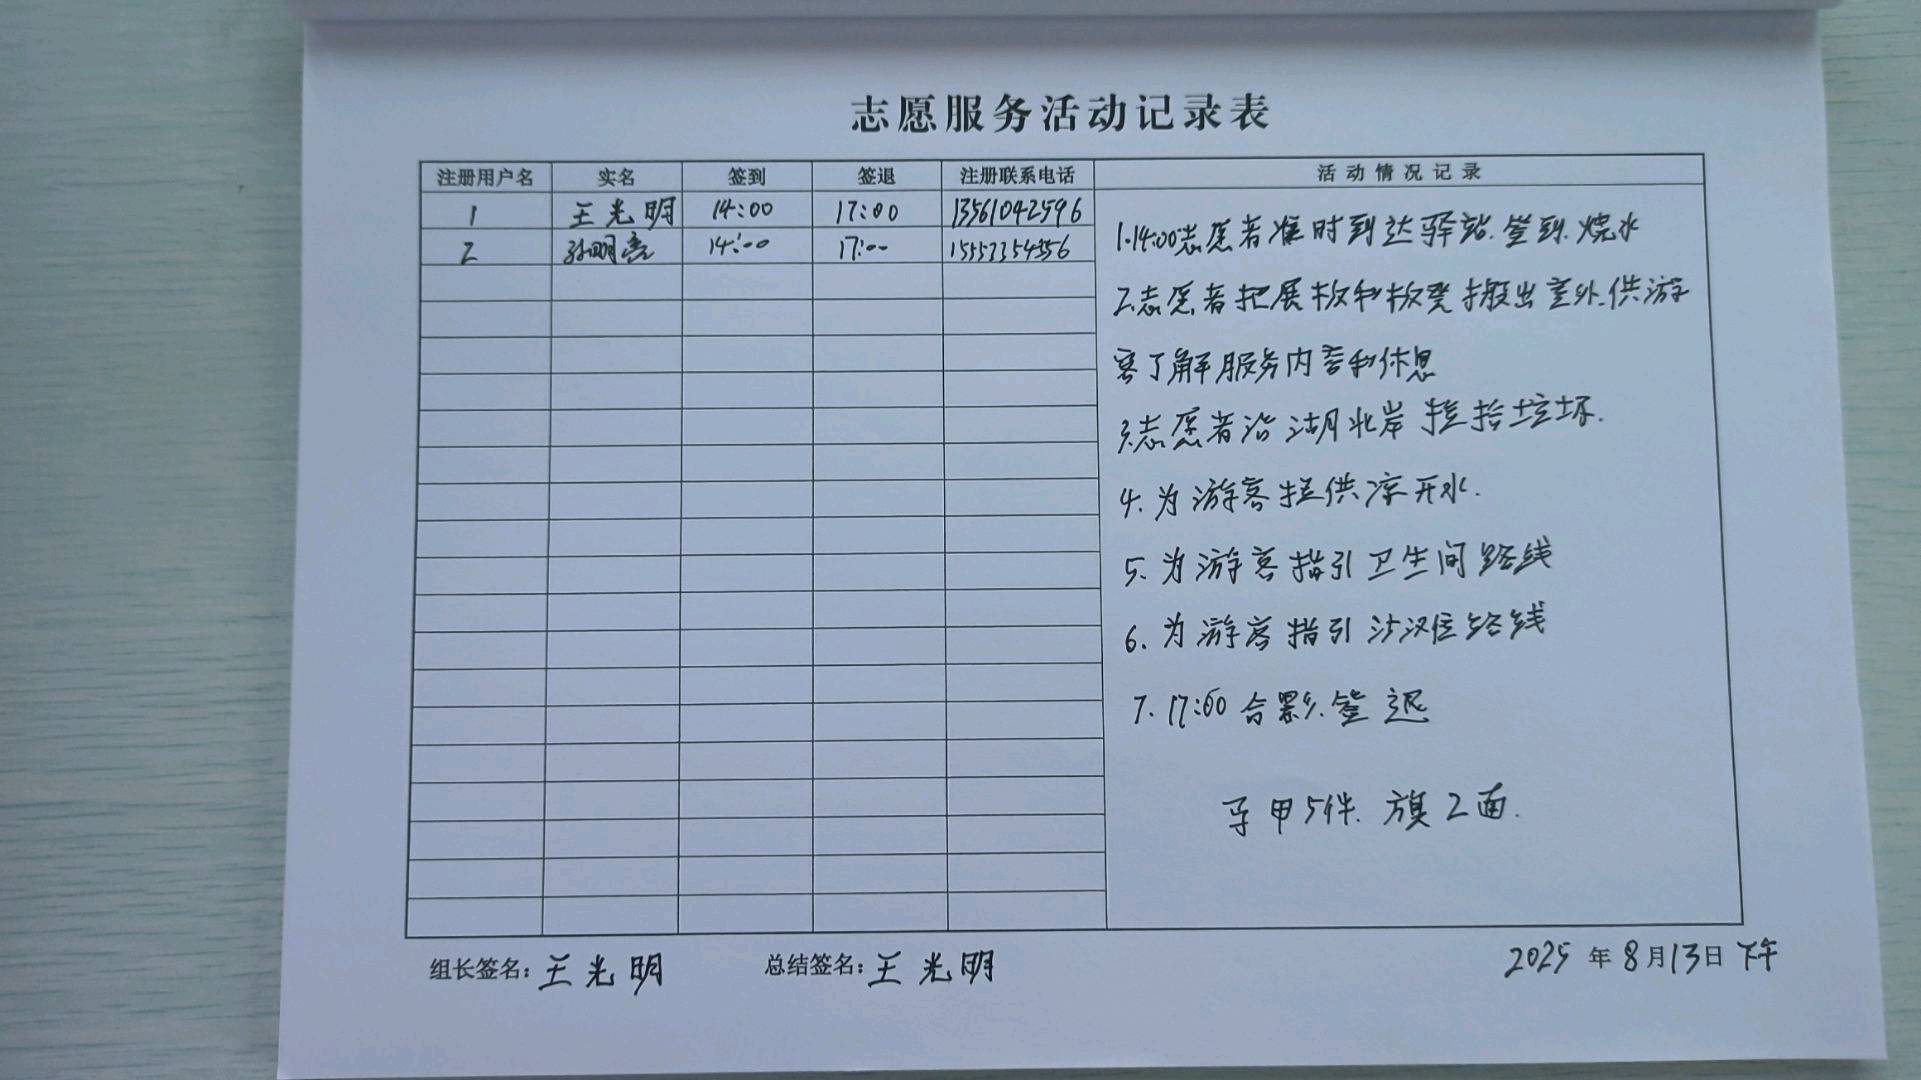 志愿服务活动记录表
注册用户名 实名 签到 签退 注册联系电话 活动情况记录
1 王光明 14:00 17:00 13561042596
2 孙明亮 14:00 17:00
1.14:00志愿者准时到达驿站.签到.烧水
2.志愿者把展板和板凳搬出室外.供游
客了解服务内容和休息
3.志愿者沿湖北岸捡拾垃圾.
4.为游客提供凉开水.
5.为游客指引卫生间路线
6.为游客指引路线
7.17:00合影.签退
马甲5件.旗2面.
组长签名:王光明 总结签名:王光明 2025年8月13日下午